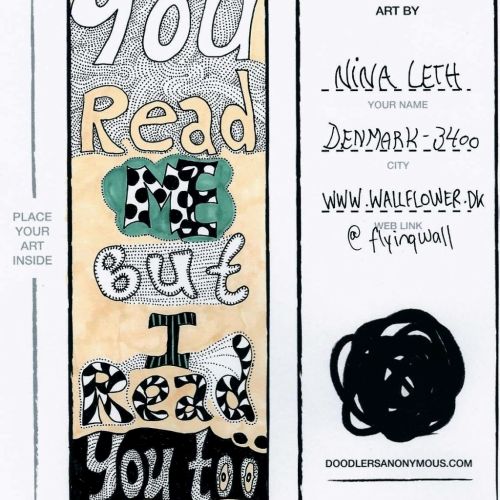 You
Read
ME
But
I
Read
You too
PLACE
YOUR
ART
INSIDE
ART BY
NiNa LETH
YOUR NAME
DENMARK-3400
CITY
WWW.WALLFLOWER.DK
WEB LINK
@ flyingwall
DOODLERSANONYMOUS.COM